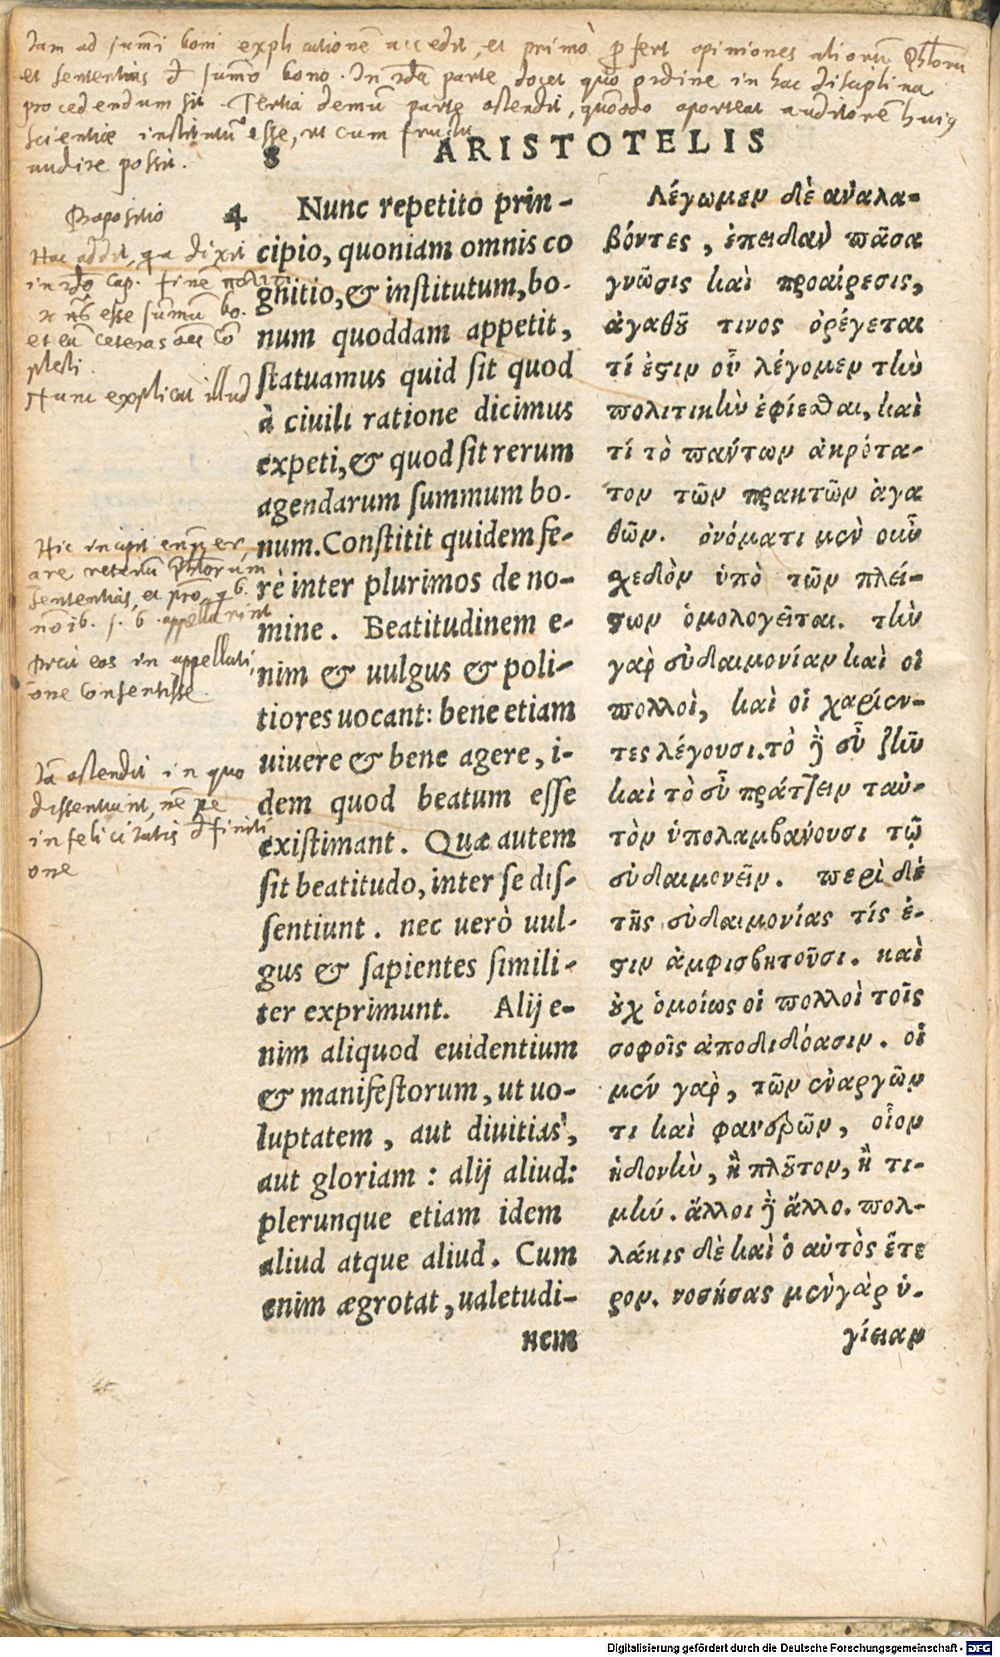 Jam ad summi boni explicationē accedit, et primò profert opiniones aliorū
et sententias de summo bono. In 2da parte docet quo ordine in hac disciplina
procedendum sit. Tertia demū parte ostendit, quomodo oporteat auditorē huius
scientiæ institutū esse, ut cum fructu
audire possit.
8 ARISTOTELIS
Propositio
Hæc addit, quia dixit
in 2do cap. finē
esse summū bo.
et eā ceteras
plecti.
Nunc explicat illud
Hic incipit enumer
are veterū
sententias, et
appellarint
eos in appellati
one consentisse.
Jā ostendit in quo
dissentiunt,
in felicitatis definiti
one
4 Nunc repetito prin-
cipio, quoniam omnis co
gnitio, & institutum, bo-
num quoddam appetit,
statuamus quid sit quod
à ciuili ratione dicimus
expeti, & quod sit rerum
agendarum summum bo-
num. Constitit quidem fe-
rè inter plurimos de no-
mine. Beatitudinem e-
nim & uulgus & poli-
tiores uocant: bene etiam
uiuere & bene agere, i-
dem quod beatum esse
existimant. Quæ autem
sit beatitudo, inter se dis-
sentiunt. nec uerò uul-
gus & sapientes simili-
ter exprimunt. Alij e-
nim aliquod euidentium
& manifestorum, ut uo-
luptatem, aut diuitias,
aut gloriam: alij aliud:
plerunque etiam idem
aliud atque aliud. Cum
enim ægrotat, ualetudi-
nem
Λέγωμεν δὲ ἀναλα-
βόντες, ἐπειδὰν πᾶσα
γνῶσις καὶ προαίρεσις,
ἀγαθοῦ τινος ὀρέγεται
τί ἐστιν οὗ λέγομεν τὴν
πολιτικὴν ἐφίεσθαι, καὶ
τί τὸ πάντων ἀκρότα-
τον τῶν πρακτῶν ἀγα
θῶν. ὀνόματι μὲν οὖν
σχεδὸν ὑπὸ τῶν πλεί-
στων ὁμολογεῖται. τὴν
γὰρ εὐδαιμονίαν καὶ οἱ
πολλοὶ, καὶ οἱ χαρίεν-
τες λέγουσι. τὸ δὲ εὖ ζῆν
καὶ τὸ εὖ πράττειν ταὐ-
τὸν ὑπολαμβάνουσι τῷ
εὐδαιμονεῖν. περὶ δὲ
τῆς εὐδαιμονίας τίς ἐ-
στιν ἀμφισβητοῦσι. καὶ
οὐχ ὁμοίως οἱ πολλοὶ τοῖς
σοφοῖς ἀποδιδόασιν. οἱ
μὲν γὰρ, τῶν ἐναργῶν
τι καὶ φανερῶν, οἷον
ἡδονὴν, ἢ πλοῦτον, ἢ τι-
μήν. ἄλλοι δὲ ἄλλο. πολ-
λάκις δὲ καὶ ὁ αὐτὸς ἕτε
ρον. νοσήσας μὲν γὰρ ὑ-
γίειαν
Digitalisierung gefördert durch die Deutsche Forschungsgemeinschaft - DFG